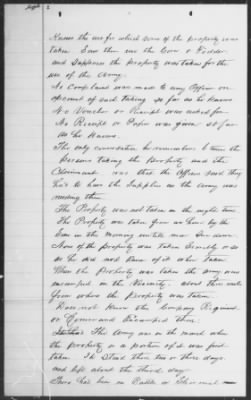 Knows the use for which some of the property was
taken. Saw them use the Corn & Fodder
and supposes the property was taken for the
use of the Army.
No Complaint was made to any Officer on
account of said taking so far as he knows
No Voucher or Receipt was asked for
No Receipt or Paper was given so far
as he knows.
The only conversation he remembers between the
persons taking the property and the
Claimant was that the Officers said they
had to have the supplies as the Army was
needing them.
The Property was not taken in the night time
The Property was taken from an hour by the
Sun in the morning until
None of the property was taken Secretly or so
he did not know of it when taken
When the Property was taken the army were
encamped in the Vicinity. about three miles
from where the property was taken.
Does not know the Company Regiment
or Command Encamped there.
The Army was on the march when
the property or a portion of it was first
taken. It staid there two or three days.
and left about the third day
There had been no Battle or Skirmish —